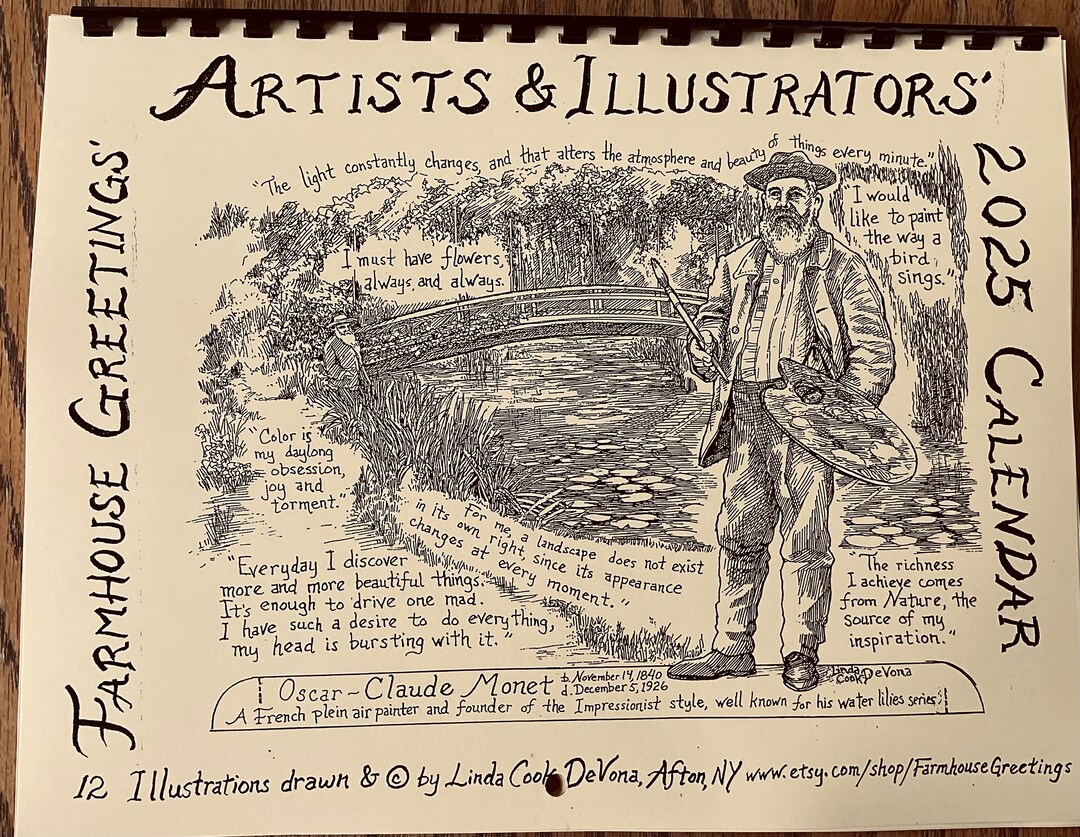 ARTISTS & ILLUSTRATORS'
FARMHOUSE GREETINGS'
2025 CALENDAR
"The light constantly changes, and that alters the atmosphere and beauty of things every minute."
I must have flowers,
always, and always.
I would
like to paint
the way a
bird
sings."
"Color is
my daylong
obsession,
joy and
torment."
For me, a landscape does not exist
in its own right, since its appearance
changes at every moment."
"Everyday I discover
more and more beautiful things.
It's enough to drive one mad.
I have such a desire to do everything,
my head is bursting with it."
"The richness
I achieve comes
from Nature, the
source of my
inspiration."
Linda
Cook DeVona
Oscar-Claude Monet b. November 14, 1840
d. December 5, 1926
A French plein air painter and founder of the Impressionist style, well known for his water lilies series.
12 Illustrations drawn & © by Linda Cook DeVona, Afton, NY www.etsy.com/shop/FarmhouseGreetings